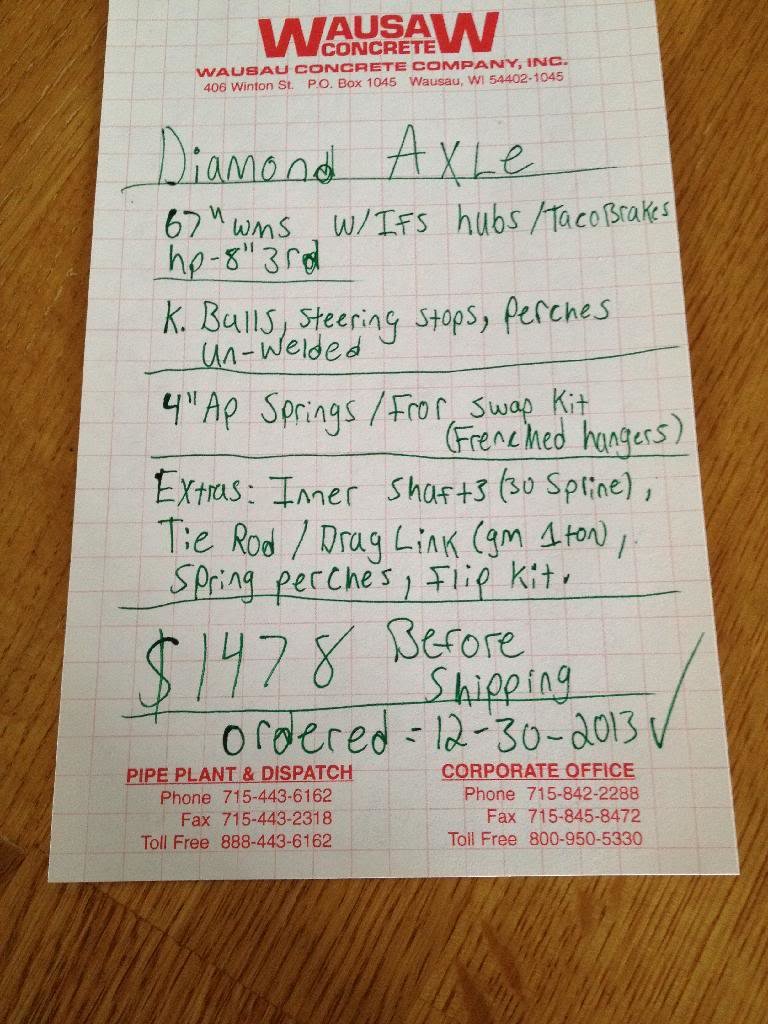 WAUSAW
CONCRETE
WAUSAU CONCRETE COMPANY, INC.
406 Winton St. P.O. Box 1045 Wausau, WI 54402-1045
Diamond AxLe
67" wms w/IFS hubs/TacoBrakes
hp-8" 3rd
K. Balls, steering stops, perches
un-welded
4" Ap Springs/Fror swap Kit
(Frenched hangers)
Extras: Inner shafts (30 Spline),
Tie Rod / Drag Link (gm 1ton),
spring perches, Flip Kit.
$1478 Before
shipping
ordered = 12-30-2013 ✓
PIPE PLANT & DISPATCH
Phone 715-443-6162
Fax 715-443-2318
Toll Free 888-443-6162
CORPORATE OFFICE
Phone 715-842-2288
Fax 715-845-8472
Toll Free 800-950-5330